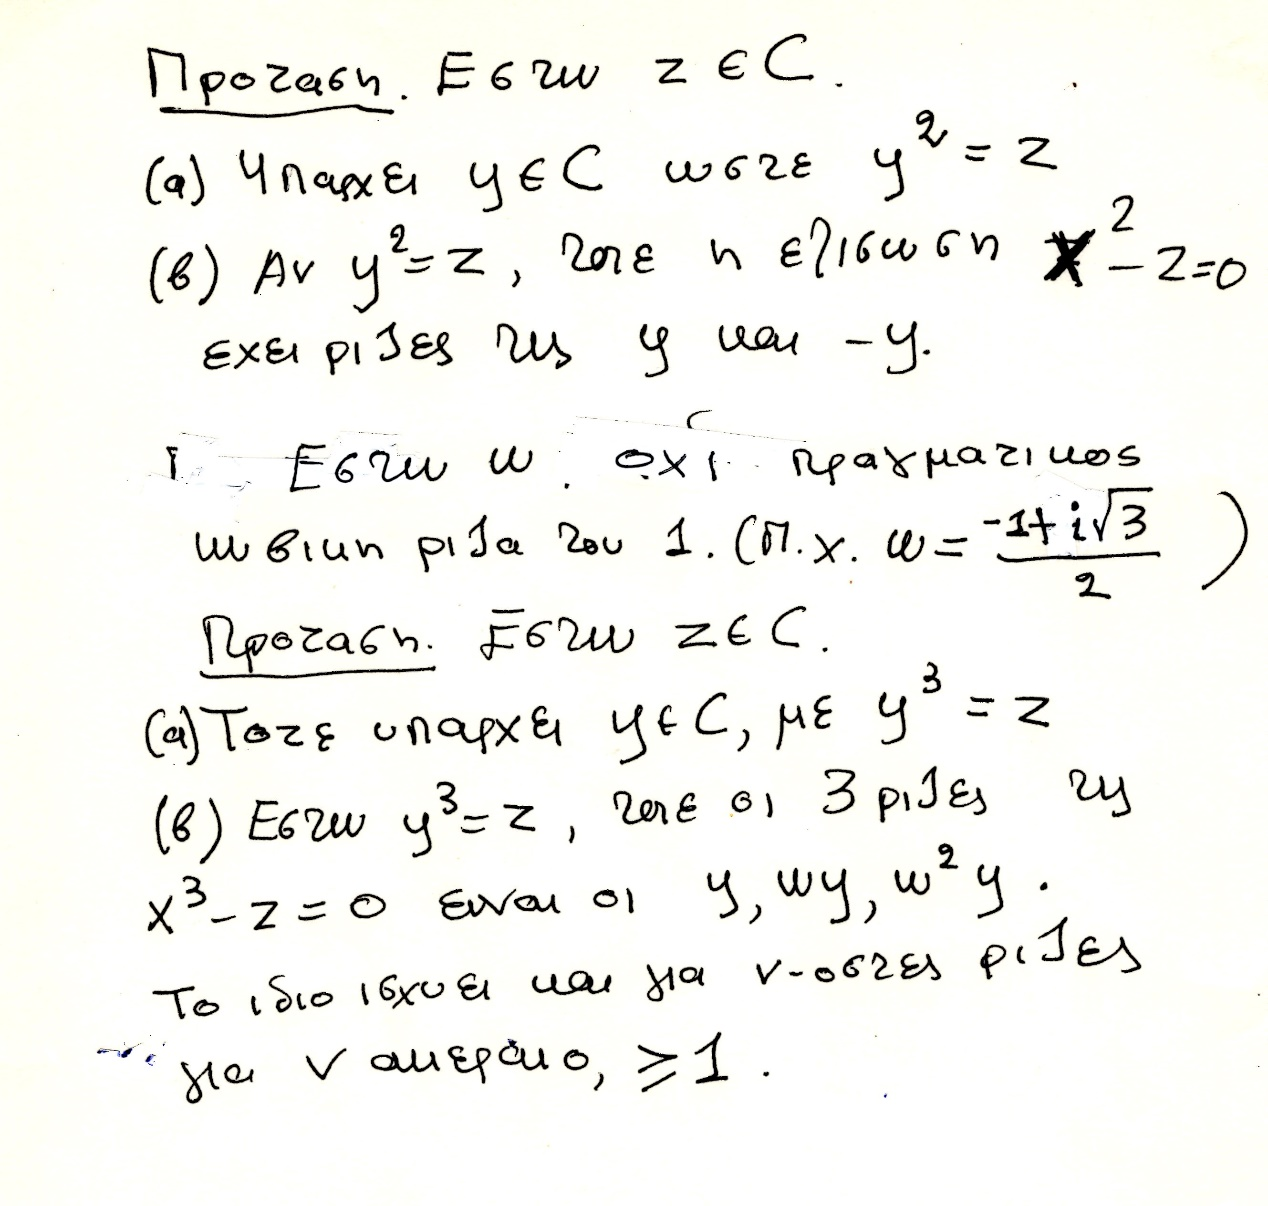 Προταση. Εστω z ∈ C.
(α) Υπαρχει y ∈ C ωστε y² = z
(β) Αν y² = z, τοτε η εξισωση x² - z = 0
εχει ριζες τις y και -y.
Εστω w. οχι πραγματικος
κυβικη ριζα του 1. (Π.χ. w = (-1+i√3)/2)
Προταση. Εστω z ∈ C.
(α) Τοτε υπαρχει y ∈ C, με y³ = z
(β) Εστω y³ = z, τοτε οι 3 ριζες της
x³ - z = 0 ειναι οι y, wy, w²y.
Το ιδιο ισχυει και για ν-οστες ριζες
για ν ακεραιο, ≥ 1.